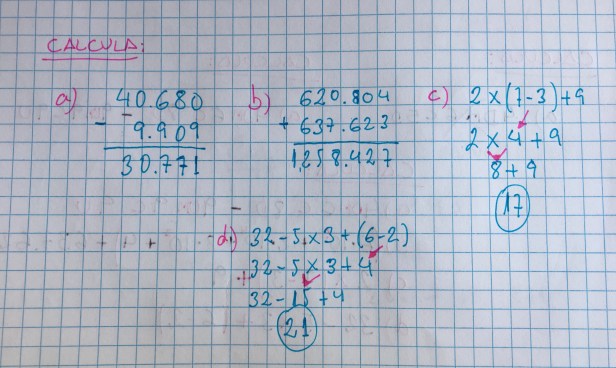 CALCULA:
a) 40.680
- 9.909
30.771
b) 620.804
+ 637.623
1,258.427
c) 2 x (7-3) + 9
2 x 4 + 9
8 + 9
17
d) 32 - 5 x 3 + (6-2)
32 - 5 x 3 + 4
32 - 15 + 4
21